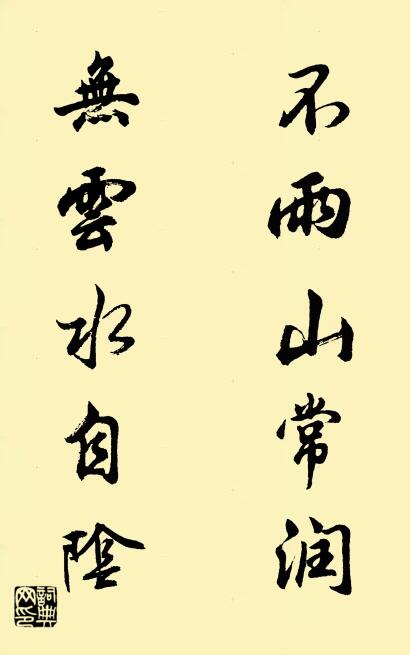 不雨山常润
無雲水自陰
詞典网印